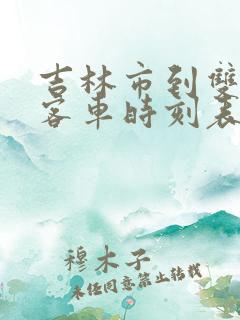 吉林市到雙
客車時刻表
穆木子
未经同意禁止转载